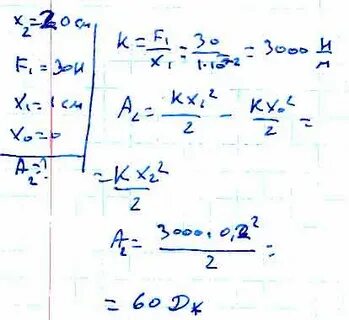 x₂=20 см
F₁=30Н
x₁=1 см
x₀=0
A₂=?
K = F₁/x₁ = 30/1·10⁻² = 3000 Н/м
A₂ = Kx₂²/2 - Kx₀²/2 =
= Kx₂²/2
A₂ = 3000·0,2²/2 =
= 60 Дж